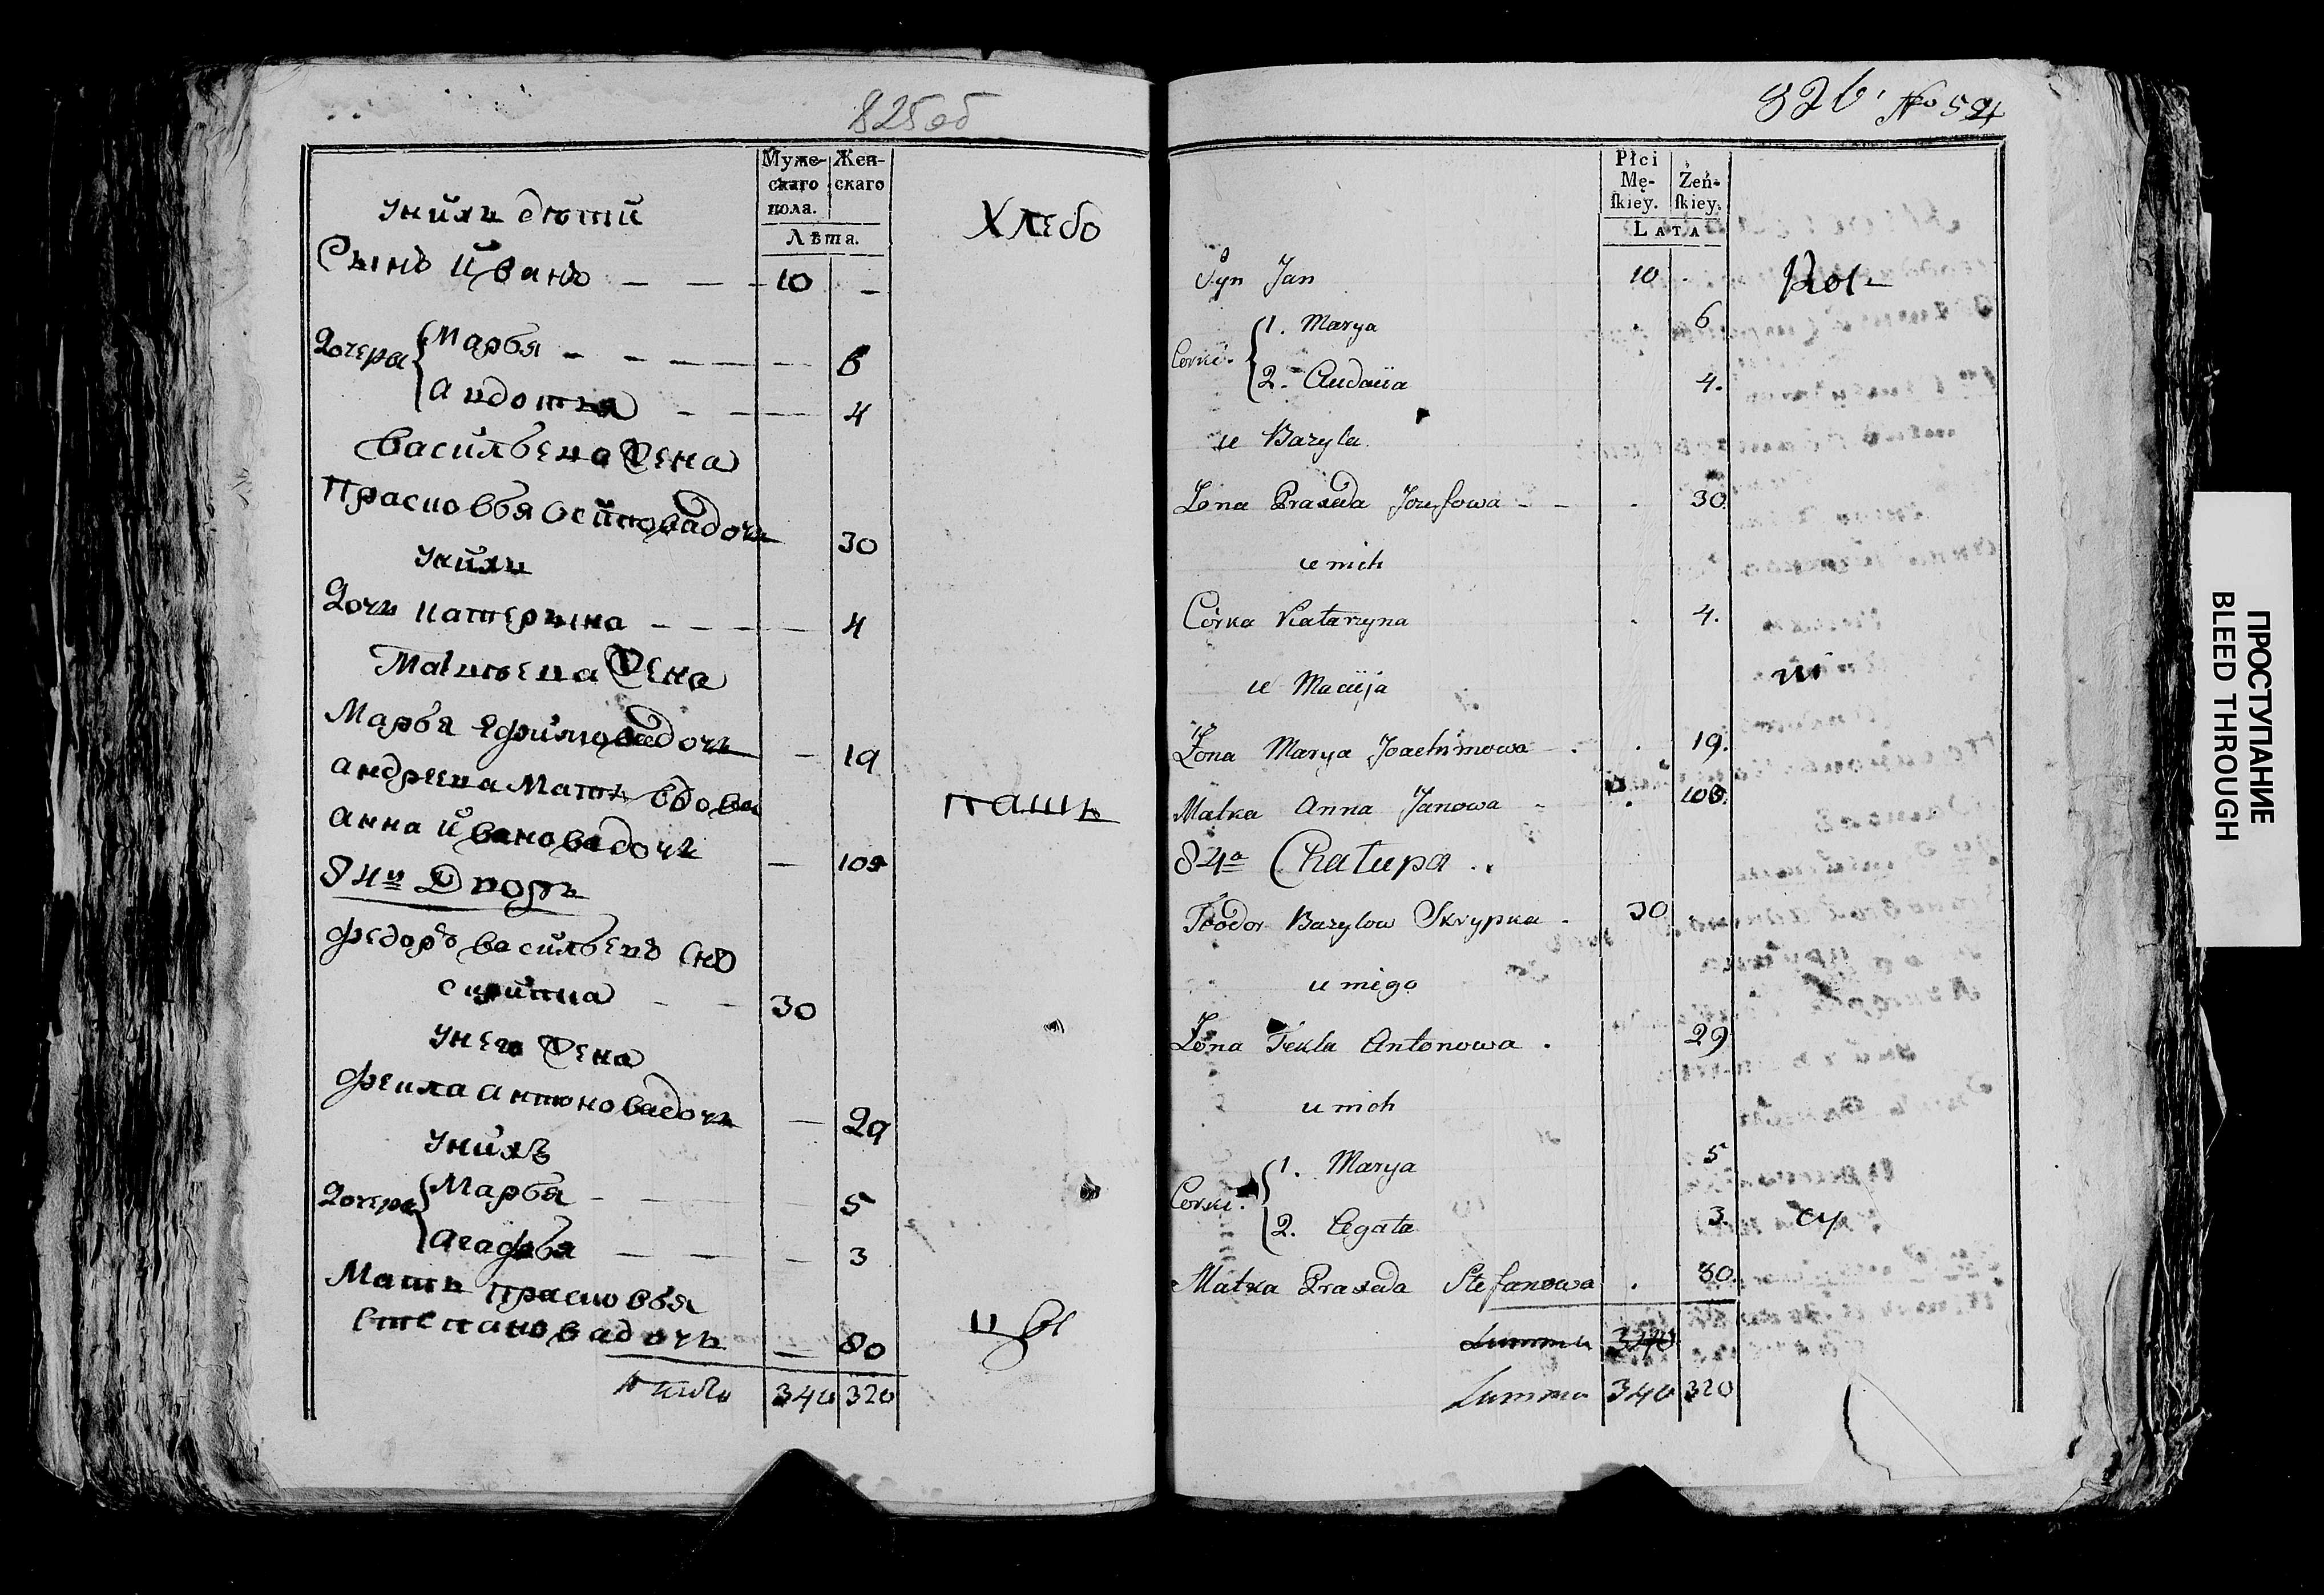 825об
Муже-
скаго
пола.
Жен-
скаго
Лѣта.
Хлебо
у нихъ дѣти
Сынъ иванъ — — — 10 —
дочери { Марья — — — — 6
авдотья — — — 4
васильева жена
Прасковья осиповадочь 30
у нихъ
дочь катерына — — — — 4
Матвѣева жена
Марья Ефимовадочь — 19
андреева Мать вдова
анна ивановадочь — 109
пашъ
84й Дворъ
федоръ васильевъ снъ
скрипка — — 30
у него жена
фекла антоновадочь — 29
у нихъ
дочери { Марья — — — 5
агафья — — — 3
Мать прасковья
степановадочь — 80
340 320
326 No 52
Płci
Mę-
ſkiey.
Zeń-
ſkiey.
LATA
Syn Jan 10 -
Córki { 1. Marya . 6
2. Audocia 4.
u Bazyla
Zona Praxeda Jozefowa - - . 30
u nich
Córka Katarzyna . 4.
u Macieja
Zona Marya Joachimowa . . 19.
Matka Anna Janowa - . 109.
84a Chałupa ..
Teodor Bazylow Skrypka - 30
u niego
Zona Tekla Antonowa . 29
u nich
Corki. { 1. Marya 5
2. Agata 3
Matka Praxeda Stefanowa . 80
Summa 340
Summa 340 320
ПРОСТУПАНИЕ
BLEED THROUGH